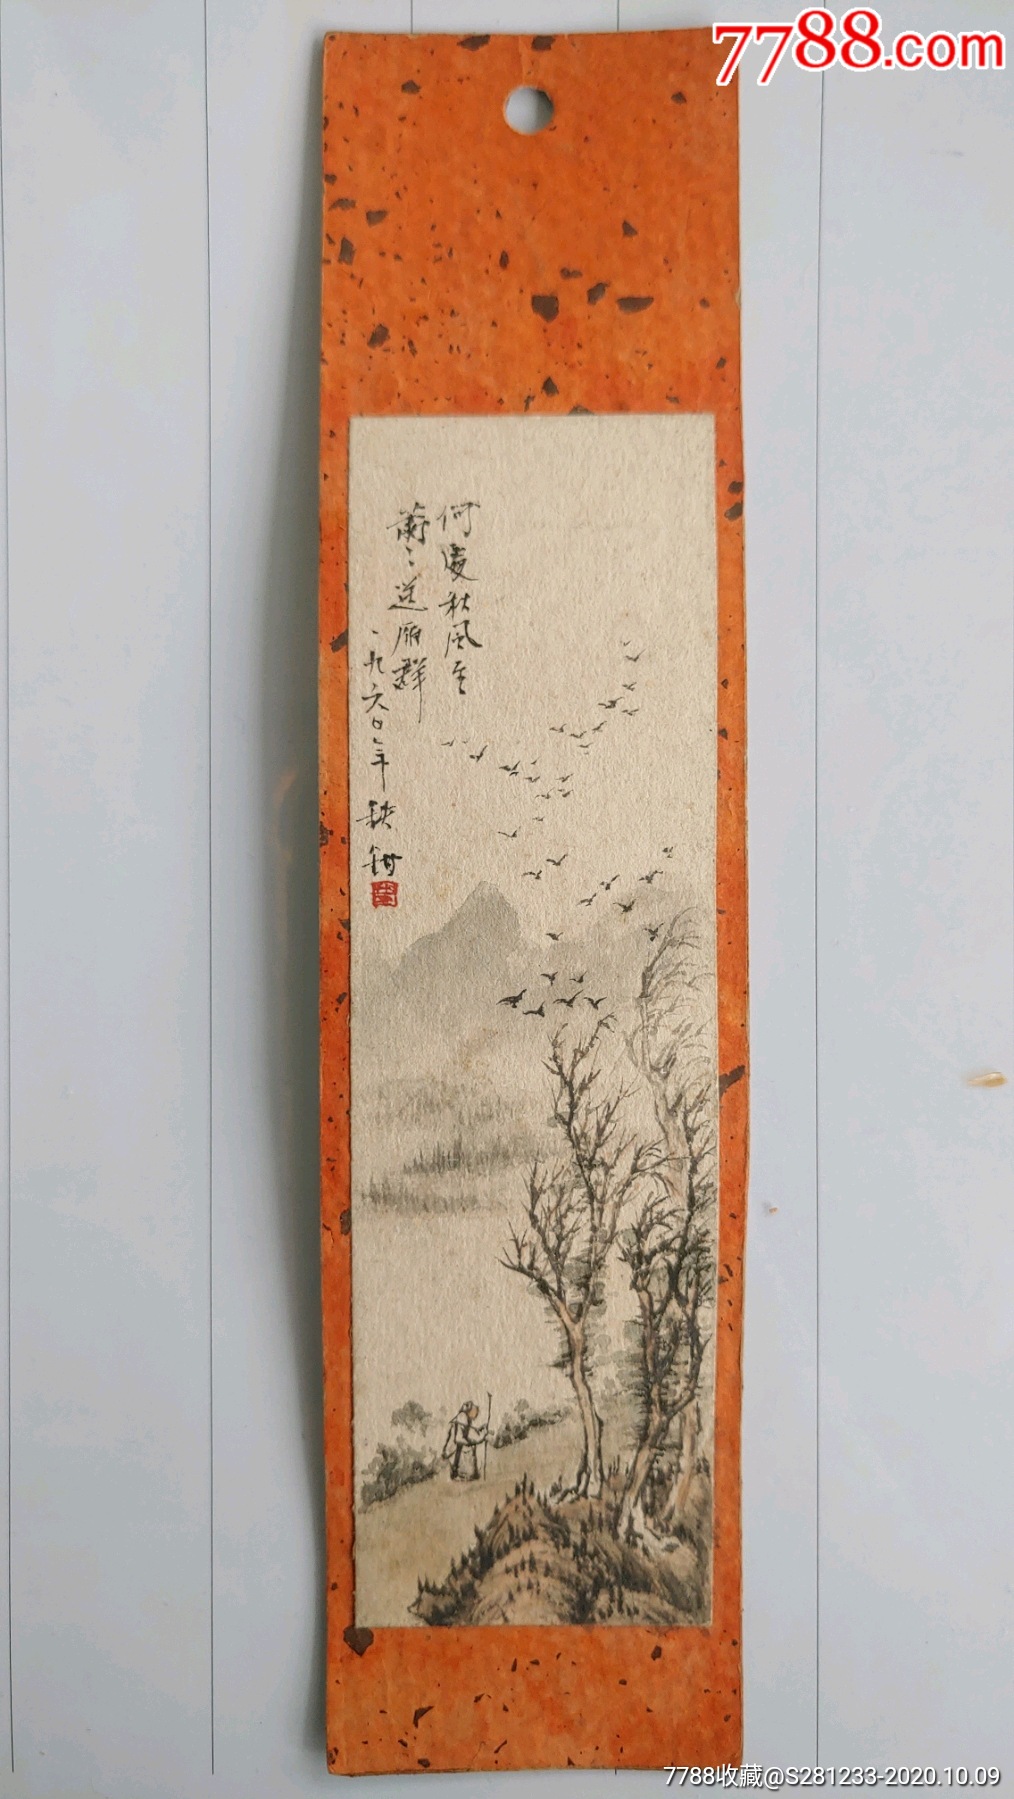 7788.com
何處秋風至
蕭々送雁群
一九六〇年 秋
7788收藏@S281233-2020.10.09